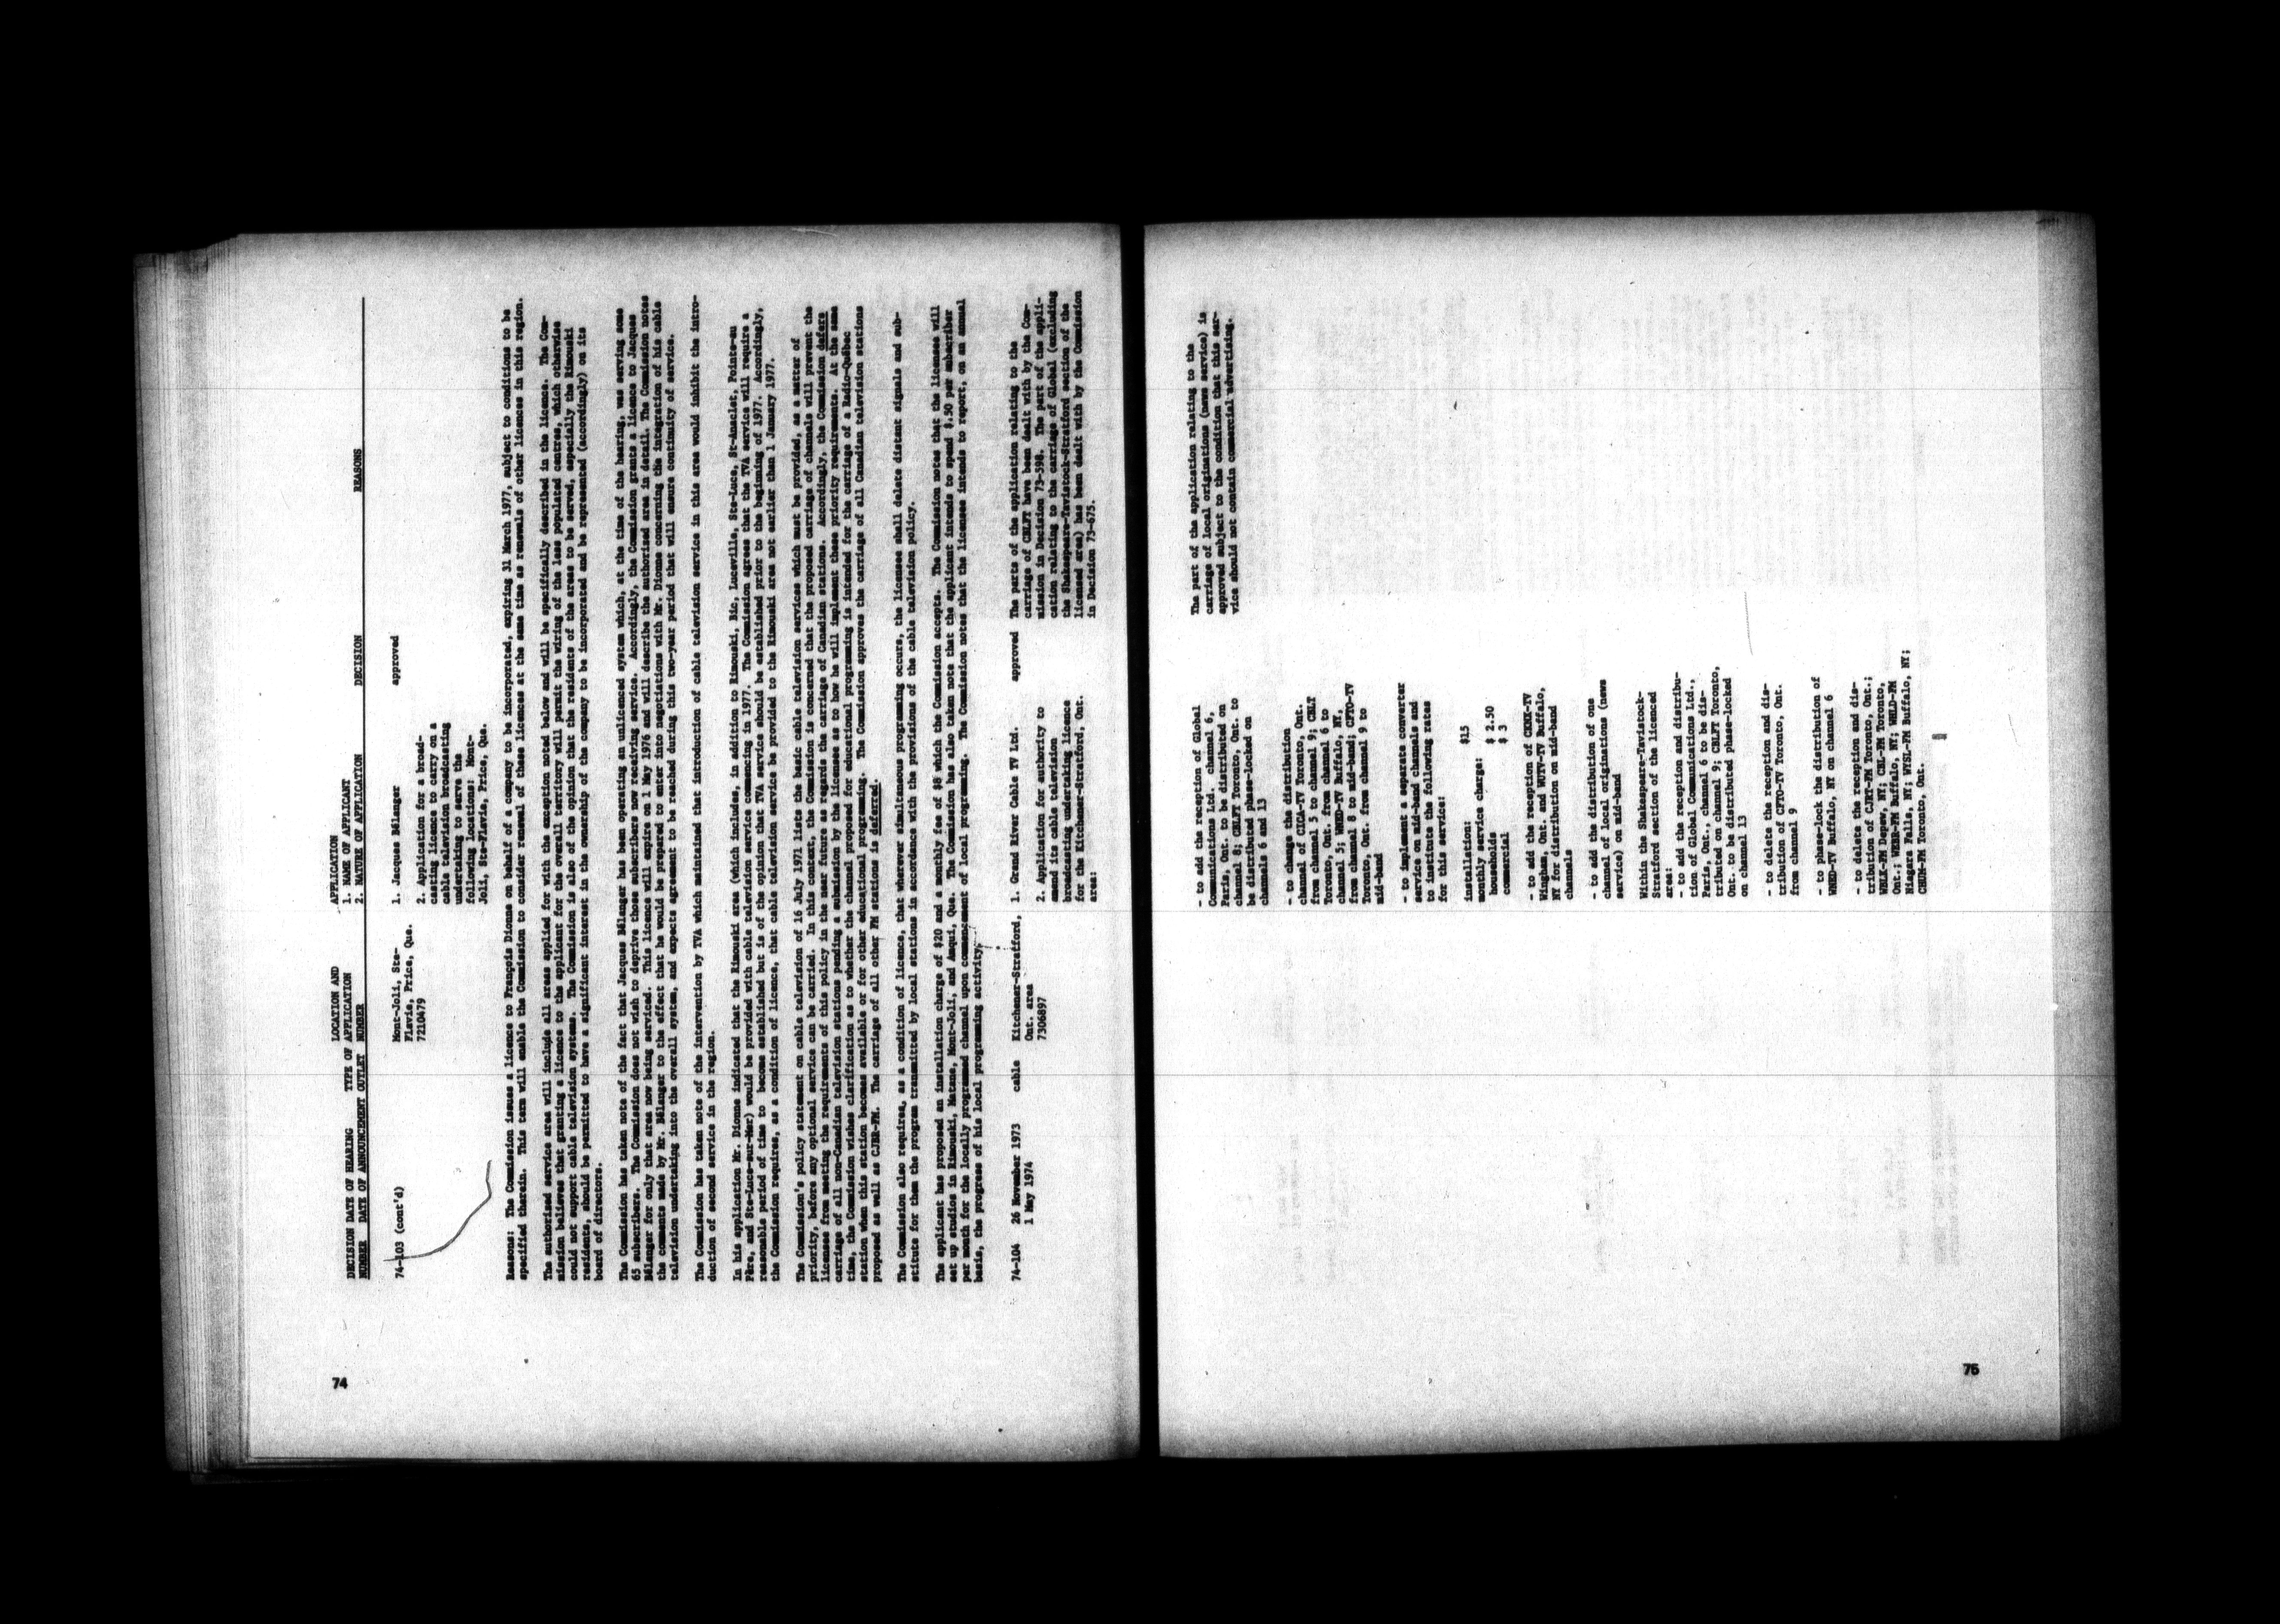 DECISION DATE OF HEARING LOCATION AND APPLICATION
NUMBER DATE OF ANNOUNCEMENT TYPE OF APPLICATION 1. NAME OF APPLICANT
OUTLET NUMBER 2. NATURE OF APPLICATION DECISION REASONS
74-103 (cont'd) Mont-Joli, Ste- 1. Jacques Bélanger approved
Flavie, Price, Que.
7210479
2. Application for a broad-
casting licence to carry on a
cable television broadcasting
undertaking to serve the
following locations: Mont-
Joli, Ste-Flavie, Price, Que.
Reasons: The Commission issues a licence to François Dionne on behalf of a company to be incorporated, expiring 31 March 1977, subject to conditions to be
specified therein. This term will enable the Commission to consider renewal of these licences at the same time as renewals of other licences in this region.
The authorized service area will include all areas applied for with the exception noted below and will be specifically described in the licence. The Com-
mission believes that granting a licence to the applicant for the overall territory will permit the wiring of the less populated centres, which otherwise
could not support cable television systems. The Commission is also of the opinion that the residents of the areas to be served, especially the Rimouski
residents, should be permitted to have a significant interest in the ownership of the company to be incorporated and be represented (accordingly) on its
board of directors.
The Commission has taken note of the fact that Jacques Bélanger has been operating an unlicenced system which, at the time of the hearing, was serving some
65 subscribers. The Commission does not wish to deprive those subscribers now receiving service. Accordingly, the Commission grants a licence to Jacques
Bélanger for only that area now being serviced. This licence will expire on 1 May 1976 and will describe the authorized area in detail. The Commission notes
the comments made by Mr. Bélanger to the effect that he would be prepared to enter into negotiations with Mr. Dionne concerning the integration of his cable
television undertaking into the overall system, and expects agreement to be reached during this two-year period that will ensure continuity of service.
The Commission has taken note of the intervention by TVA which maintained that introduction of cable television service in this area would inhibit the intro-
duction of second service in the region.
In his application Mr. Dionne indicated that the Rimouski area (which includes, in addition to Rimouski, Bic, Luceville, Ste-Luce, St-Anaclet, Pointe-au
Père, and Ste-Luce-sur-Mer) would be provided with cable television service commencing in 1977. The Commission agrees that the TVA service will require a
reasonable period of time to become established but is of the opinion that TVA service should be established prior to the beginning of 1977. Accordingly,
the Commission requires, as a condition of licence, that cable television service be provided to the Rimouski area not earlier than 1 January 1977.
The Commission's policy statement on cable television of 16 July 1971 lists the basic cable television services which must be provided, as a matter of
priority, before any optional service can be carried. In this context, the Commission is concerned that the proposed carriage of channels will prevent the
licensee from meeting the requirements of this policy in the near future as regards the carriage of Canadian stations. Accordingly, the Commission defers
carriage of all non-Canadian television stations pending a submission by the licensee as to how he will implement these priority requirements. At the same
time, the Commission wishes clarification as to whether the channel proposed for educational programming is intended for the carriage of a Radio-Québec
station when this station becomes available or for other educational programming. The Commission approves the carriage of all Canadian television stations
proposed as well as CJBR-FM. The carriage of all other FM stations is deferred.
The Commission also requires, as a condition of licence, that wherever simultaneous programming occurs, the licensee shall delete distant signals and sub-
stitute for them the program transmitted by local stations in accordance with the provisions of the cable television policy.
The applicant has proposed an installation charge of $20 and a monthly fee of $8 which the Commission accepts. The Commission notes that the licensee will
set up studios in Rimouski, Matane, Mont-Joli, and Amqui, Que. The Commission has also taken note that the applicant intends to spend $.50 per subscriber
per month for the locally programmed channel upon commencement of local programming. The Commission notes that the licensee intends to report, on an annual
basis, the progress of his local programming activity.
74-104 26 November 1973 cable Kitchener-Stratford, 1. Grand River Cable TV Ltd. approved
1 May 1974 Ont. area
7306897
2. Application for authority to
amend its cable television
broadcasting undertaking licence
for the Kitchener-Stratford, Ont.
area:
The parts of the application relating to the
carriage of CBLFT have been dealt with by the Com-
mission in Decision 73-598. The part of the appli-
cation relating to the carriage of Global (excluding
the Shakespeare-Tavistock-Stratford section of the
licensed area) has been dealt with by the Commission
in Decision 73-675.
74
- to add the reception of Global
Communications Ltd. channel 6,
Paris, Ont. to be distributed on
channel 8; CBLFT Toronto, Ont. to
be distributed phase-locked on
channels 6 and 13
The part of the application relating to the
carriage of local originations (news service) is
approved subject to the condition that this ser-
vice should not contain commercial advertising.
- to change the distribution
channel of CICA-TV Toronto, Ont.
from channel 5 to channel 9; CBLT
Toronto, Ont. from channel 6 to
channel 5; WNED-TV Buffalo, NY,
from channel 8 to mid-band; CFTO-TV
Toronto, Ont. from channel 9 to
mid-band
- to implement a separate converter
service on mid-band channels and
to institute the following rates
for this service:
installation: $15
monthly service charge:
households $ 2.50
commercial $ 3
- to add the reception of CKNX-TV
Wingham, Ont. and WUTV-TV Buffalo,
NY for distribution on mid-band
channels
- to add the distribution of one
channel of local originations (news
service) on mid-band
Within the Shakespeare-Tavistock-
Stratford section of the licenced
area:
- to add the reception and distribu-
tion of Global Communications Ltd.,
Paris, Ont., channel 6 to be dis-
tributed on channel 9; CBLFT Toronto,
Ont. to be distributed phase-locked
on channel 13
- to delete the reception and dis-
tribution of CFTO-TV Toronto, Ont.
from channel 9
- to phase-lock the distribution of
WNED-TV Buffalo, NY on channel 6
- to delete the reception and dis-
tribution of CJRT-FM Toronto, Ont.;
WBLK-FM Depew, NY; CBL-FM Toronto,
Ont.; WEBR-FM Buffalo, NY; WHLD-FM
Niagara Falls, NY; WYSL-FM Buffalo, NY;
CHUM-FM Toronto, Ont.
75